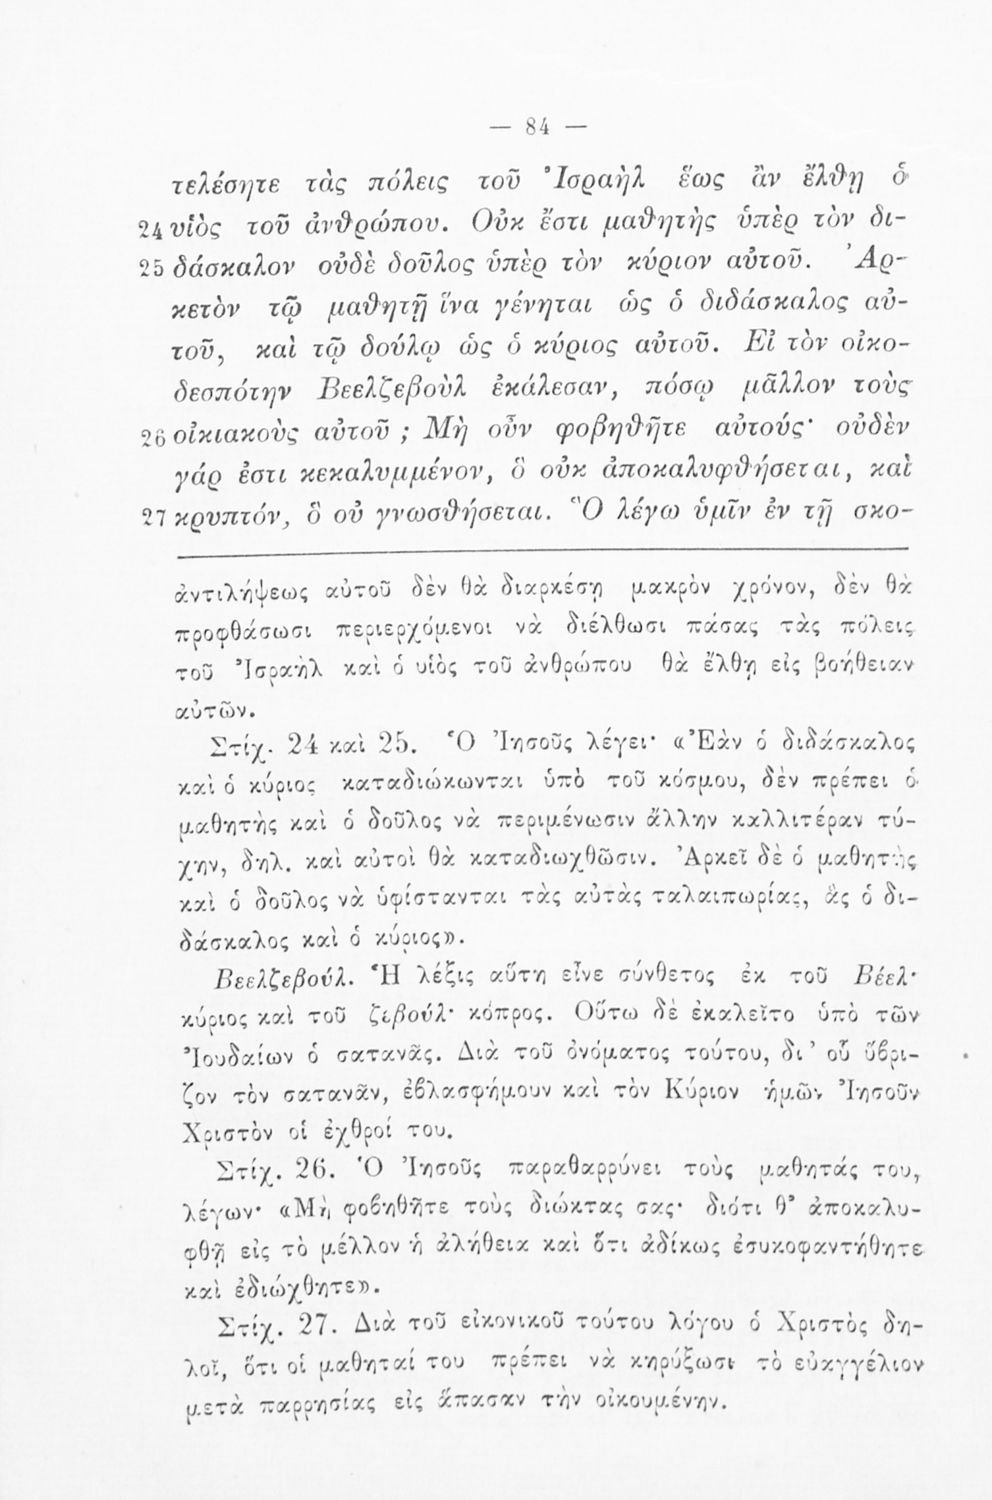 — 84 —
τελέσητε τὰς πόλεις τοῦ Ἰσραὴλ ἕως ἂν ἔλθῃ ὁ
24 υἱὸς τοῦ ἀνθρώπου. Οὐκ ἔστι μαθητὴς ὑπὲρ τὸν δι-
25 δάσκαλον οὐδὲ δοῦλος ὑπὲρ τὸν κύριον αὐτοῦ. Ἀρ-
κετὸν τῷ μαθητῇ ἵνα γένηται ὡς ὁ διδάσκαλος αὐ-
τοῦ, καὶ τῷ δούλῳ ὡς ὁ κύριος αὐτοῦ. Εἰ τὸν οἰκο-
δεσπότην Βεελζεβοὺλ ἐκάλεσαν, πόσῳ μᾶλλον τοὺς
26 οἰκιακοὺς αὐτοῦ ; Μὴ οὖν φοβηθῆτε αὐτούς· οὐδὲν
γάρ ἐστι κεκαλυμμένον, ὃ οὐκ ἀποκαλυφθήσεται, καὶ
27 κρυπτόν, ὃ οὐ γνωσθήσεται. Ὃ λέγω ὑμῖν ἐν τῇ σκο-
ἀντιλήψεως αὐτοῦ δὲν θὰ διαρκέσῃ μακρὸν χρόνον, δὲν θὰ
προφθάσωσι περιερχόμενοι νὰ διέλθωσι πάσας τὰς πόλεις
τοῦ Ἰσραὴλ καὶ ὁ υἱὸς τοῦ ἀνθρώπου θὰ ἔλθῃ εἰς βοήθειαν
αὐτῶν.
Στίχ. 24 καὶ 25. Ὁ Ἰησοῦς λέγει· «Ἐὰν ὁ διδάσκαλος
καὶ ὁ κύριος καταδιώκωνται ὑπὸ τοῦ κόσμου, δὲν πρέπει ὁ
μαθητὴς καὶ ὁ δοῦλος νὰ περιμένωσιν ἄλλην καλλιτέραν τύ-
χην, δηλ. καὶ αὐτοὶ θὰ καταδιωχθῶσιν. Ἀρκεῖ δὲ ὁ μαθητὴς
καὶ ὁ δοῦλος νὰ ὑφίστανται τὰς αὐτὰς ταλαιπωρίας, ἃς ὁ δι-
δάσκαλος καὶ ὁ κύριος».
Βεελζεβούλ. Ἡ λέξις αὕτη εἶνε σύνθετος ἐκ τοῦ Βέελ·
κύριος καὶ τοῦ ζεβούλ· κόπρος. Οὕτω δὲ ἐκαλεῖτο ὑπὸ τῶν
Ἰουδαίων ὁ σατανᾶς. Διὰ τοῦ ὀνόματος τούτου, δι’ οὗ ὕβρι-
ζον τὸν σατανᾶν, ἐβλασφήμουν καὶ τὸν Κύριον ἡμῶν Ἰησοῦν
Χριστὸν οἱ ἐχθροί του.
Στίχ. 26. Ὁ Ἰησοῦς παραθαρρύνει τοὺς μαθητάς του,
λέγων· «Μὴ φοβηθῆτε τοὺς διώκτας σας· διότι θ’ ἀποκαλυ-
φθῇ εἰς τὸ μέλλον ἡ ἀλήθεια καὶ ὅτι ἀδίκως ἐσυκοφαντήθητε
καὶ ἐδιώχθητε».
Στίχ. 27. Διὰ τοῦ εἰκονικοῦ τούτου λόγου ὁ Χριστὸς δη-
λοῖ, ὅτι οἱ μαθηταί του πρέπει νὰ κηρύξωσι τὸ εὐαγγέλιον
μετὰ παρρησίας εἰς ἅπασαν τὴν οἰκουμένην.